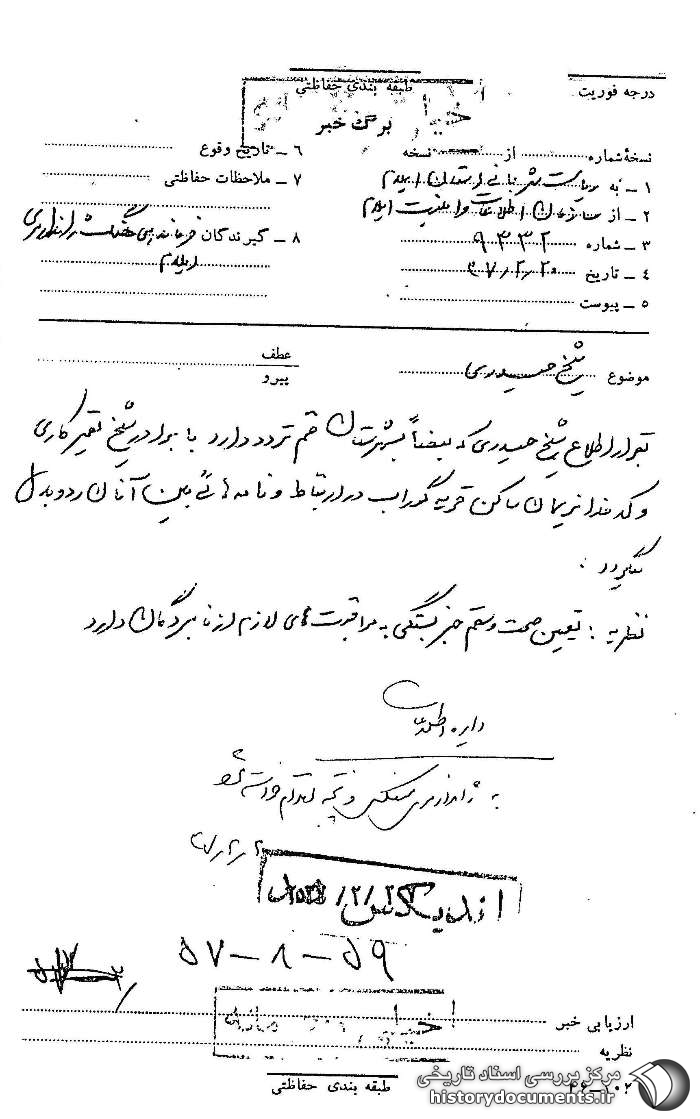 طبقه بندی حفاظتی
درجه فوریت
برگ خبر
نسخهٔ شماره از نسخه
۱ ـ به ریاست شهربانی استان ایلام
۲ ـ از سازمان اطلاعات و امنیت ایلام
۳ ـ شماره ۹۳۳۲
۴ ـ تاریخ ۳۷/۲/۲۰
۵ ـ پیوست
۶ ـ تاریخ وقوع
۷ ـ ملاحظات حفاظتی
۸ ـ گیرندگان فرماندهی هنگ ژاندارمری
ایلام
موضوع شیخ حیدری
عطف
پیرو
برابر اطلاع شیخ حیدری که بعضاً بشهرستان قم تردد دارد با برادر شیخ تعمیرکاری
و کدخدا نریمان ساکن قریه گوراب در ارتباط و نامه هائی بین آنان رد و بدل
میگردد .
نظریه : تعیین صحت و سقم خبر بستگی به مراقبت های لازم از نامبردگان دارد
دایره اطلاعات
به ژاندارمری منعکس و نتیجه اقدام خواسته شود
اندیکس
۵۷-۸-۵۹
ارزیابی خبر
نظریه
طبقه بندی حفاظتی
مرکز بررسی اسناد تاریخی
historydocuments.ir